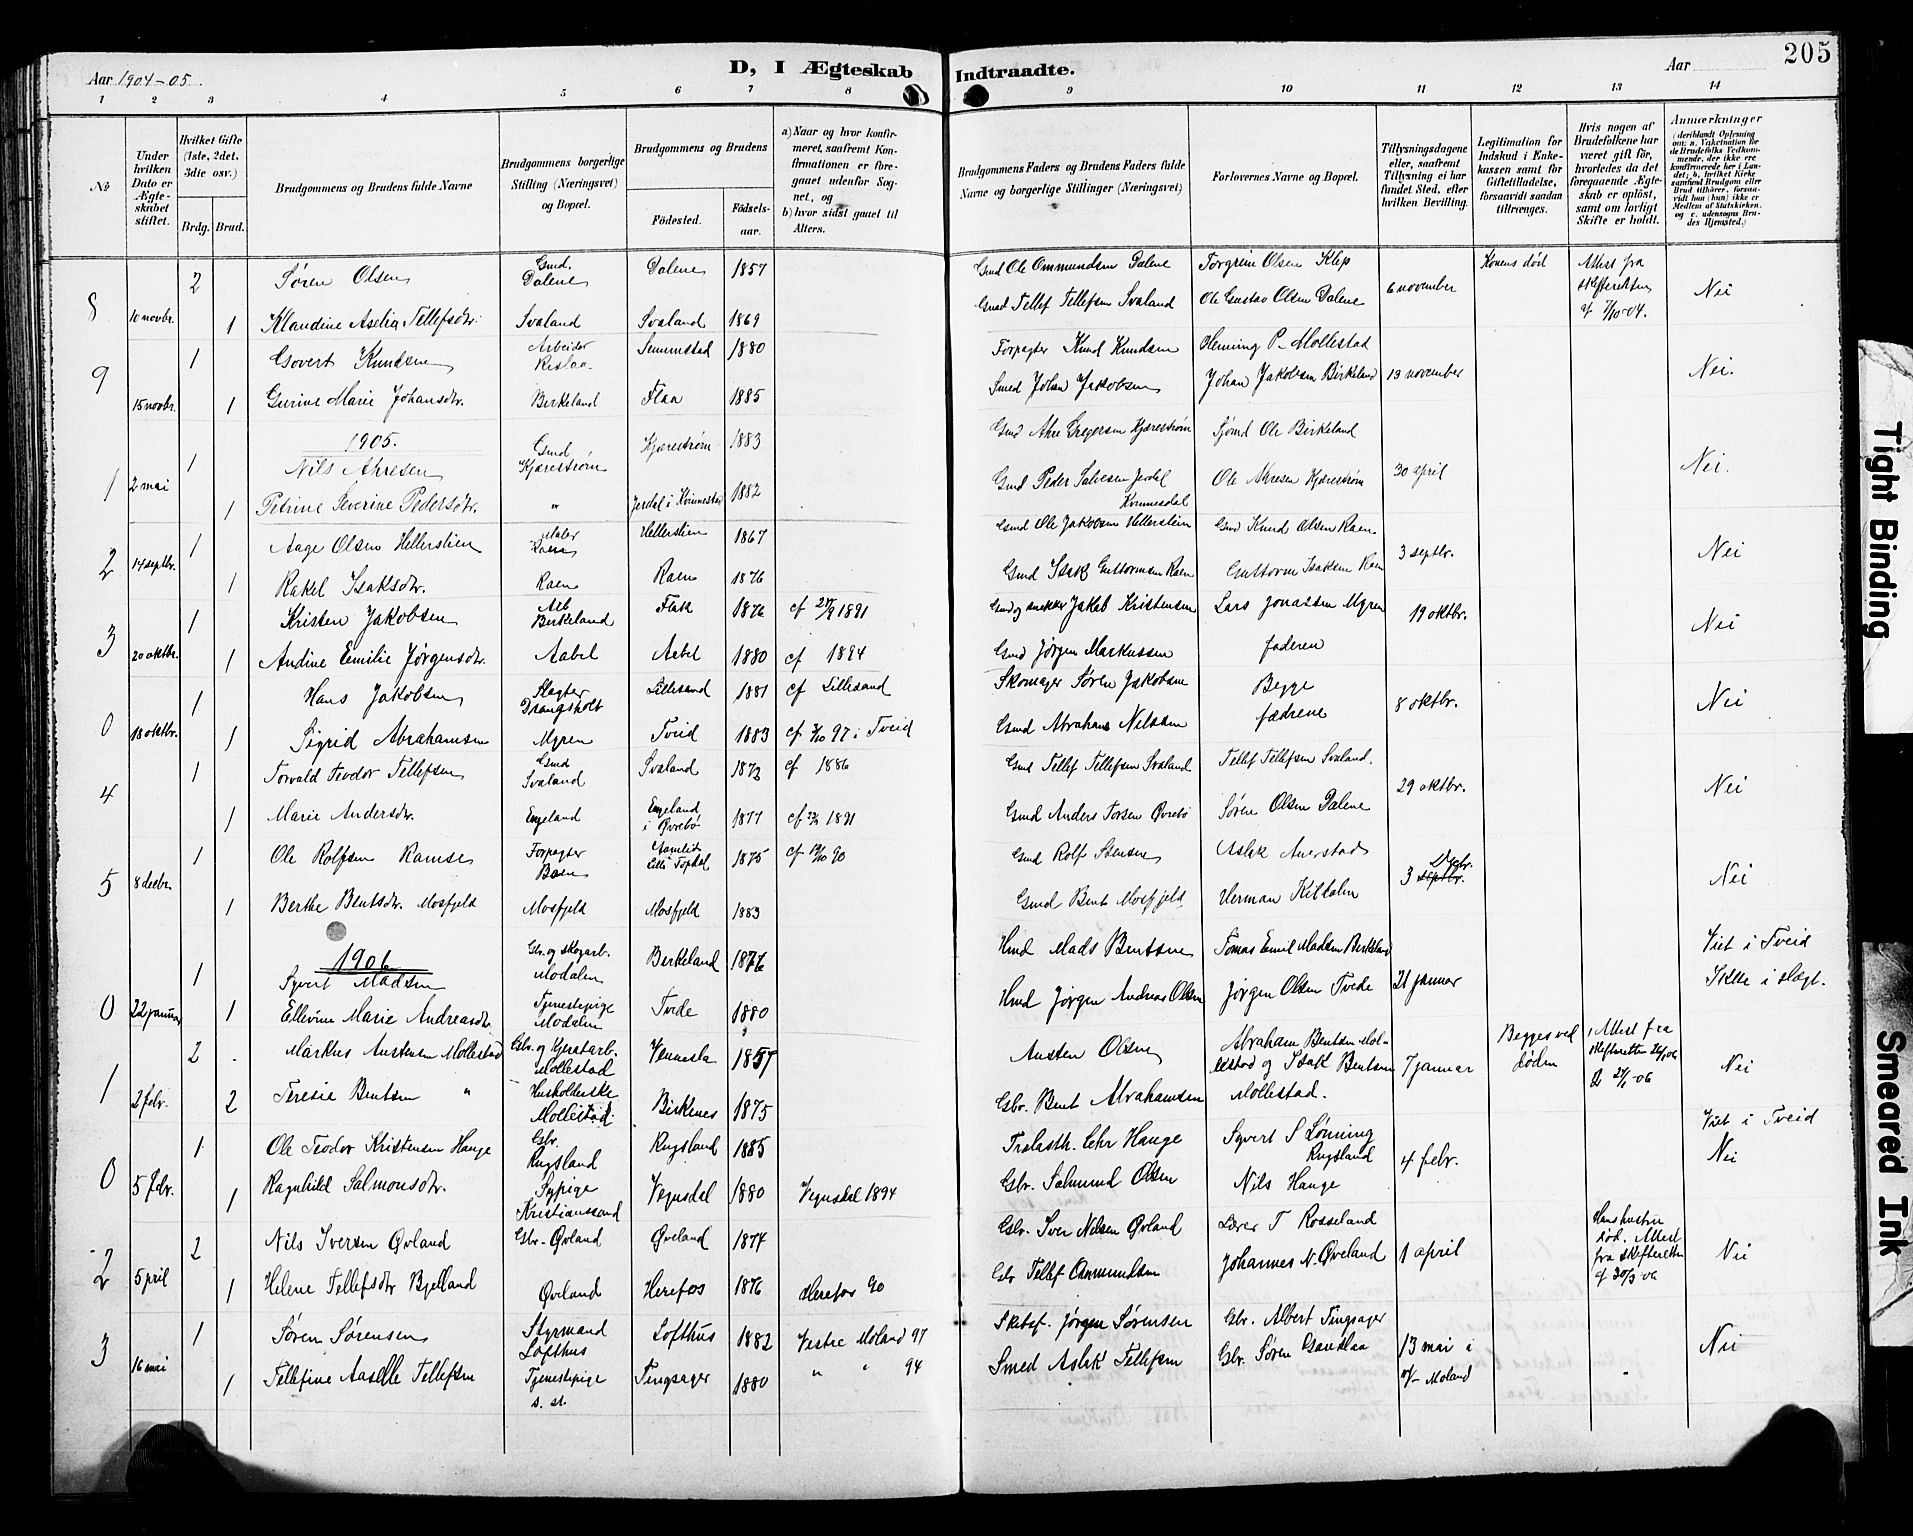 205
Aar 1904-05.
D, I Ægteskab Indtraadte.
Aar
1 2 3 4 5 6 7 8 9 10 11 12 13 14
No
Under hvilken Dato er Ægteskabet stiftet.
Hvilket Gifte (1ste, 2det, 3die osv.)
Brdg. Brud.
Brudgommens og Brudens fulde Navne
Brudgommens borgerlige Stilling (Næringsvei) og Bopæl.
Brudgommens og Brudens
Fødested. Fødselsaar.
a) Naar og hvor konfirmeret, saafremt Konfirmationen er foregaaet udenfor Sognet, og
b) hvor sidst gaaet til Alters.
Brudgommens Faders og Brudens Faders fulde Navne og borgerlige Stillinger (Næringsvei)
Forlovernes Navne og Bopæl.
Tillysningsdagene eller, saafremt Tillysning ei har fundet Sted, efter hvilken Bevilling.
Legitimation for Indskud i Enkekassen samt for Giftetilladelse, forsaavidt saadan tiltrænges.
Hvis nogen af Brudefolkene har været gift før, hvorledes da det foregaaende Ægteskab er opløst, samt om lovligt Skifte er holdt.
Anmærkninger
(deriblandt Oplysning om: a. Vakcination for de Brudefolks Vedkommende, der ikke ere konfirmerede her i Landet; b. hvilket Kirkesamfund Brudgom eller Brud tilhører, forsaavidt han (hun) ikke er Medlem af Statskirken, og c. udensogns Brudes Hjemsted.)
2 Søren Olsen Gmd. Dalene Dalene 1857 Gmd Ole Ommundsen Dalene Torgrim Olsen Klep Konens död Attest fra skifteretten af 7/10-04.
8 10 novbr. 1 Klandine Aselia Tellefsdtr. Svaland Svaland 1869 Gmd Tellef Tellefsen Svaland Ole Gustav Olsen Dalene 6 november Nei
1 Govert Knudsen Arbeider Senumstad 1880 Forpagter Knud Knudsen Henning P. Mollestad
9 15 novbr. 1 Gurine Marie Johansdtr. Birkeland Flaa 1885 Smed Johan Jakobsen Johan Jakobsen Birkeland 13 november Nei.
1905.
1 Nils Ahresen Gmd Kjærestrøm Kjærestrøm 1883 Gmd Ahre Gregersen Kjærestrøm Ole Birkeland
1 2 mai 1 Petrine Severine Pedersdtr. " Jerdal i 1882 Gmd Peder Salvesen Jerdal Ole Ahresen Kjærestrøm 30 april Nei.
1 Aage Olsen Hellerslien Maler Raen Hellerslien 1867 Gmd Ole Jakobsen Hellerslien Gmd Knud Olsen Raen
2 14 septbr. 1 Rakel Isaksdtr. Raen Raen 1876 Gmd Isak Guttormsen Raen Guttorm Isaksen Raen 3 septbr. Nei
1 Kristen Jakobsen Arb Birkeland Flak 1876 cf 27/9 1891 Gmd og snekker Jakob Kristensen Lars Jonassen Myren
3 20 oktbr. 1 Andine Emilie Jørgensdtr. Aabel Aabel 1880 cf 1894 Gmd Jørgen Markussen faderen 19 oktbr. Nei
1 Hans Jakobsen Slagter Drangsholt Lillesand 1881 cf Lillesand Skomager Søren Jakobsen Begge fædrene
0 18 oktbr. 1 Sigrid Abrahamsen Myren Tveid 1883 cf 3/10 97 i Tveid Gmd Abraham Nilssen 8 oktbr. Nei
1 Torvald Teodor Tellefsen Gmd Svaland Svaland 1872 cf 1886 Gmd Tellef Tellefsen Svaland Tellef Tellefsen Svaland.
4 1 Marie Andersdtr. Engeland Engeland i Øvrebö 1877 cf 1891 Gmd Anders Torsen Øvrebö Søren Olsen Dalene 29 oktbr. Nei
1 Ole Rolfsen Ramse Forpagter Boen Lille Topdal 1875 cf 90 Gmd Rolf Stensen Aslak Auerstad
5 8 decbr. 1 Berthe Bentsdtr. Mosfjeld Mosfjeld Mosfjeld 1883 Gmd Bent Mosfjeld Herman Kildalen 3 septbr. Decbr. Nei
1906
1 Syvert Madsen Gbr. og skogarb. Modalen Birkeland 1876 Hmd Mads Bentsen Tomas Emil Madsen Birkeland Viet i Tveid
0 22 januar 1 Ellevine Marie Andreasdtr Tjenestepige Modalen Tvede 1880 Hmd Jørgen Andreas Olsen Jørgen Olsen Tvede 21 januar Ikke i slægt.
2 Markus Austensen Mollestad Gbr. og Mollestad Vennesla 1857 Austen Olsen Abraham Bentsen Mollestad og Isak Bentsen Mollestad. 7 januar Begges ved døden Attest fra skifteretten
1 2 febr. 2 Teresie Bentsen " Husholderske Mollestad. Birkenes 1875 Gbr. Bent Abrahamsen Nei
1 Ole Teodor Kristensen Hauge Gbr. Rugsland Rugsland 1885 Trelasth. Chr Hauge Syvert S Lønning Rugsland Viet i Tveid
0 5 febr. 1 Ragnhild Salmonsdtr. Sypige Kristianssand Vegusdal 1880 Vegusdal 1894 Gbr. Salmund Olsen Nils Hauge 4 febr. Nei
2 Nils Iversen Øvland Gbr. Øvland Øveland 1874 Gbr. Iver Nilsen Øvland Lærer T Rosseland Hans hustru död. Attest fra skifteretten af 30/3-06
2 5 pril 1 Helene Tellefsdtr Bjelland Øvland Herefos 1876 Herefos 90 Gbr Tellef Ommundsen Johannes N. Øveland 1 april Nei
1 Søren Sørensen Styrmand Lofthus Lofthus 1882 Vestre Moland 97 Skibsf. Jørgen Sørensen Gbr. Albert Tingsager
3 16 mai 1 Tellefine Aaselle Tellefsen Tjenestepige s. st. Tingsager 1880 " " 94 Smed Aslak Tellefsen Gbr. Søren 13 mai i V- Moland Nei
Tight Binding
Smeared Ink